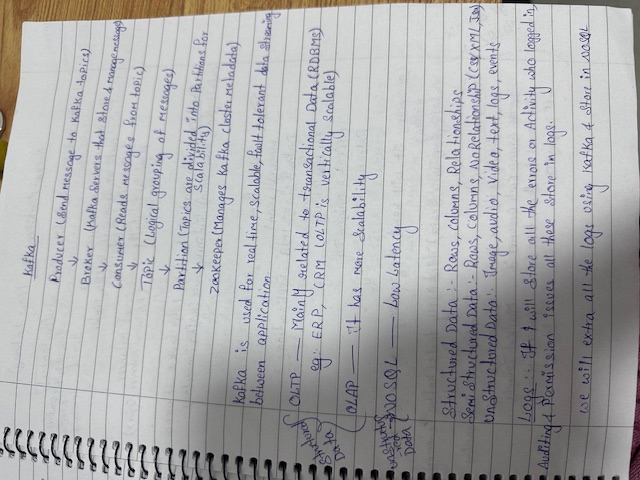 Kafka
Producer (Send message to Kafka topics)
↓
Broker (Kafka Servers that Store & manage message)
↓
Consumer (Reads messages from topic)
↓
Topic (Logical grouping of messages)
↓
Partition (Topics are divided into Partitions for
scalability)
↓
Zookeeper (Manages Kafka closter Metadata)
Kafka is used for real time, scalable, fault tolerant data streaming
between application
Structured Data
OLTP — Mainly related to transactional Data (RDBMS)
eg: ERP, CRM (OLTP is vertically scalable)
OLAP — It has more Scalability
unstructured Data
NOSQL — Low Latency
Structured Data :- Rows, columns, Relationships
Semi Structured Data :- Rows, Columns, No Relationship (CSV, XML, Json)
UnStructured Data :- Image, audio, video, text, logs, events
Logs :- If I will store all the errors or Activity who logged in,
Auditing & Permission issues all these store in logs.
we will extra all the logs using Kafka & Store in NOSQL